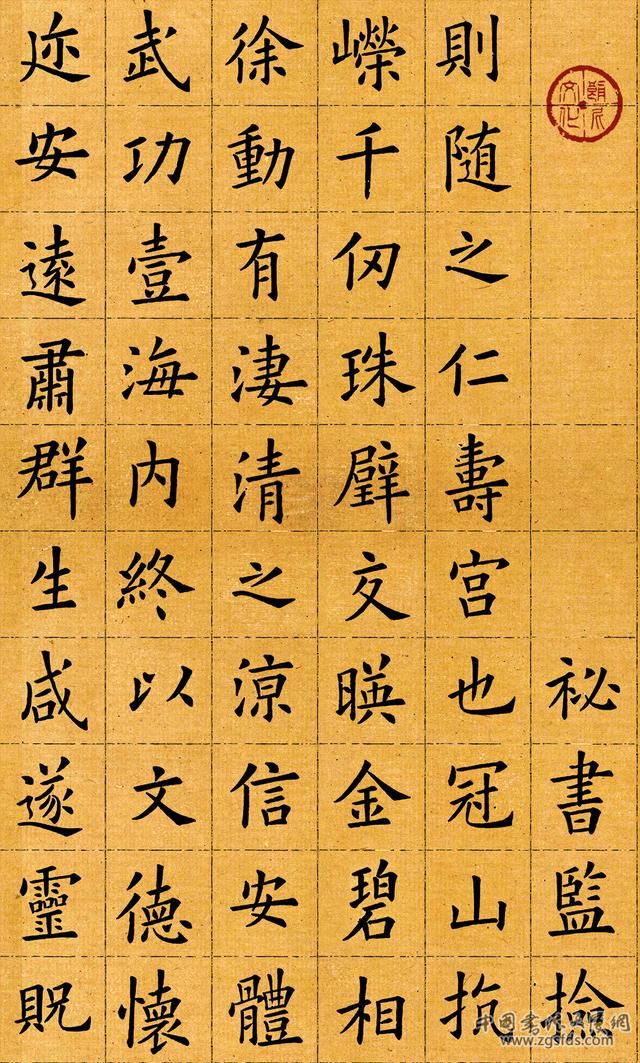 祕書監撿
則随之仁壽宫也冠山抗
嶸千仞珠璧交暎金碧相
徐動有凄清之涼信安體
武功壹海内終以文德懷
迩安遠肅群生咸遂靈貺
文化
www.zgsfds.com